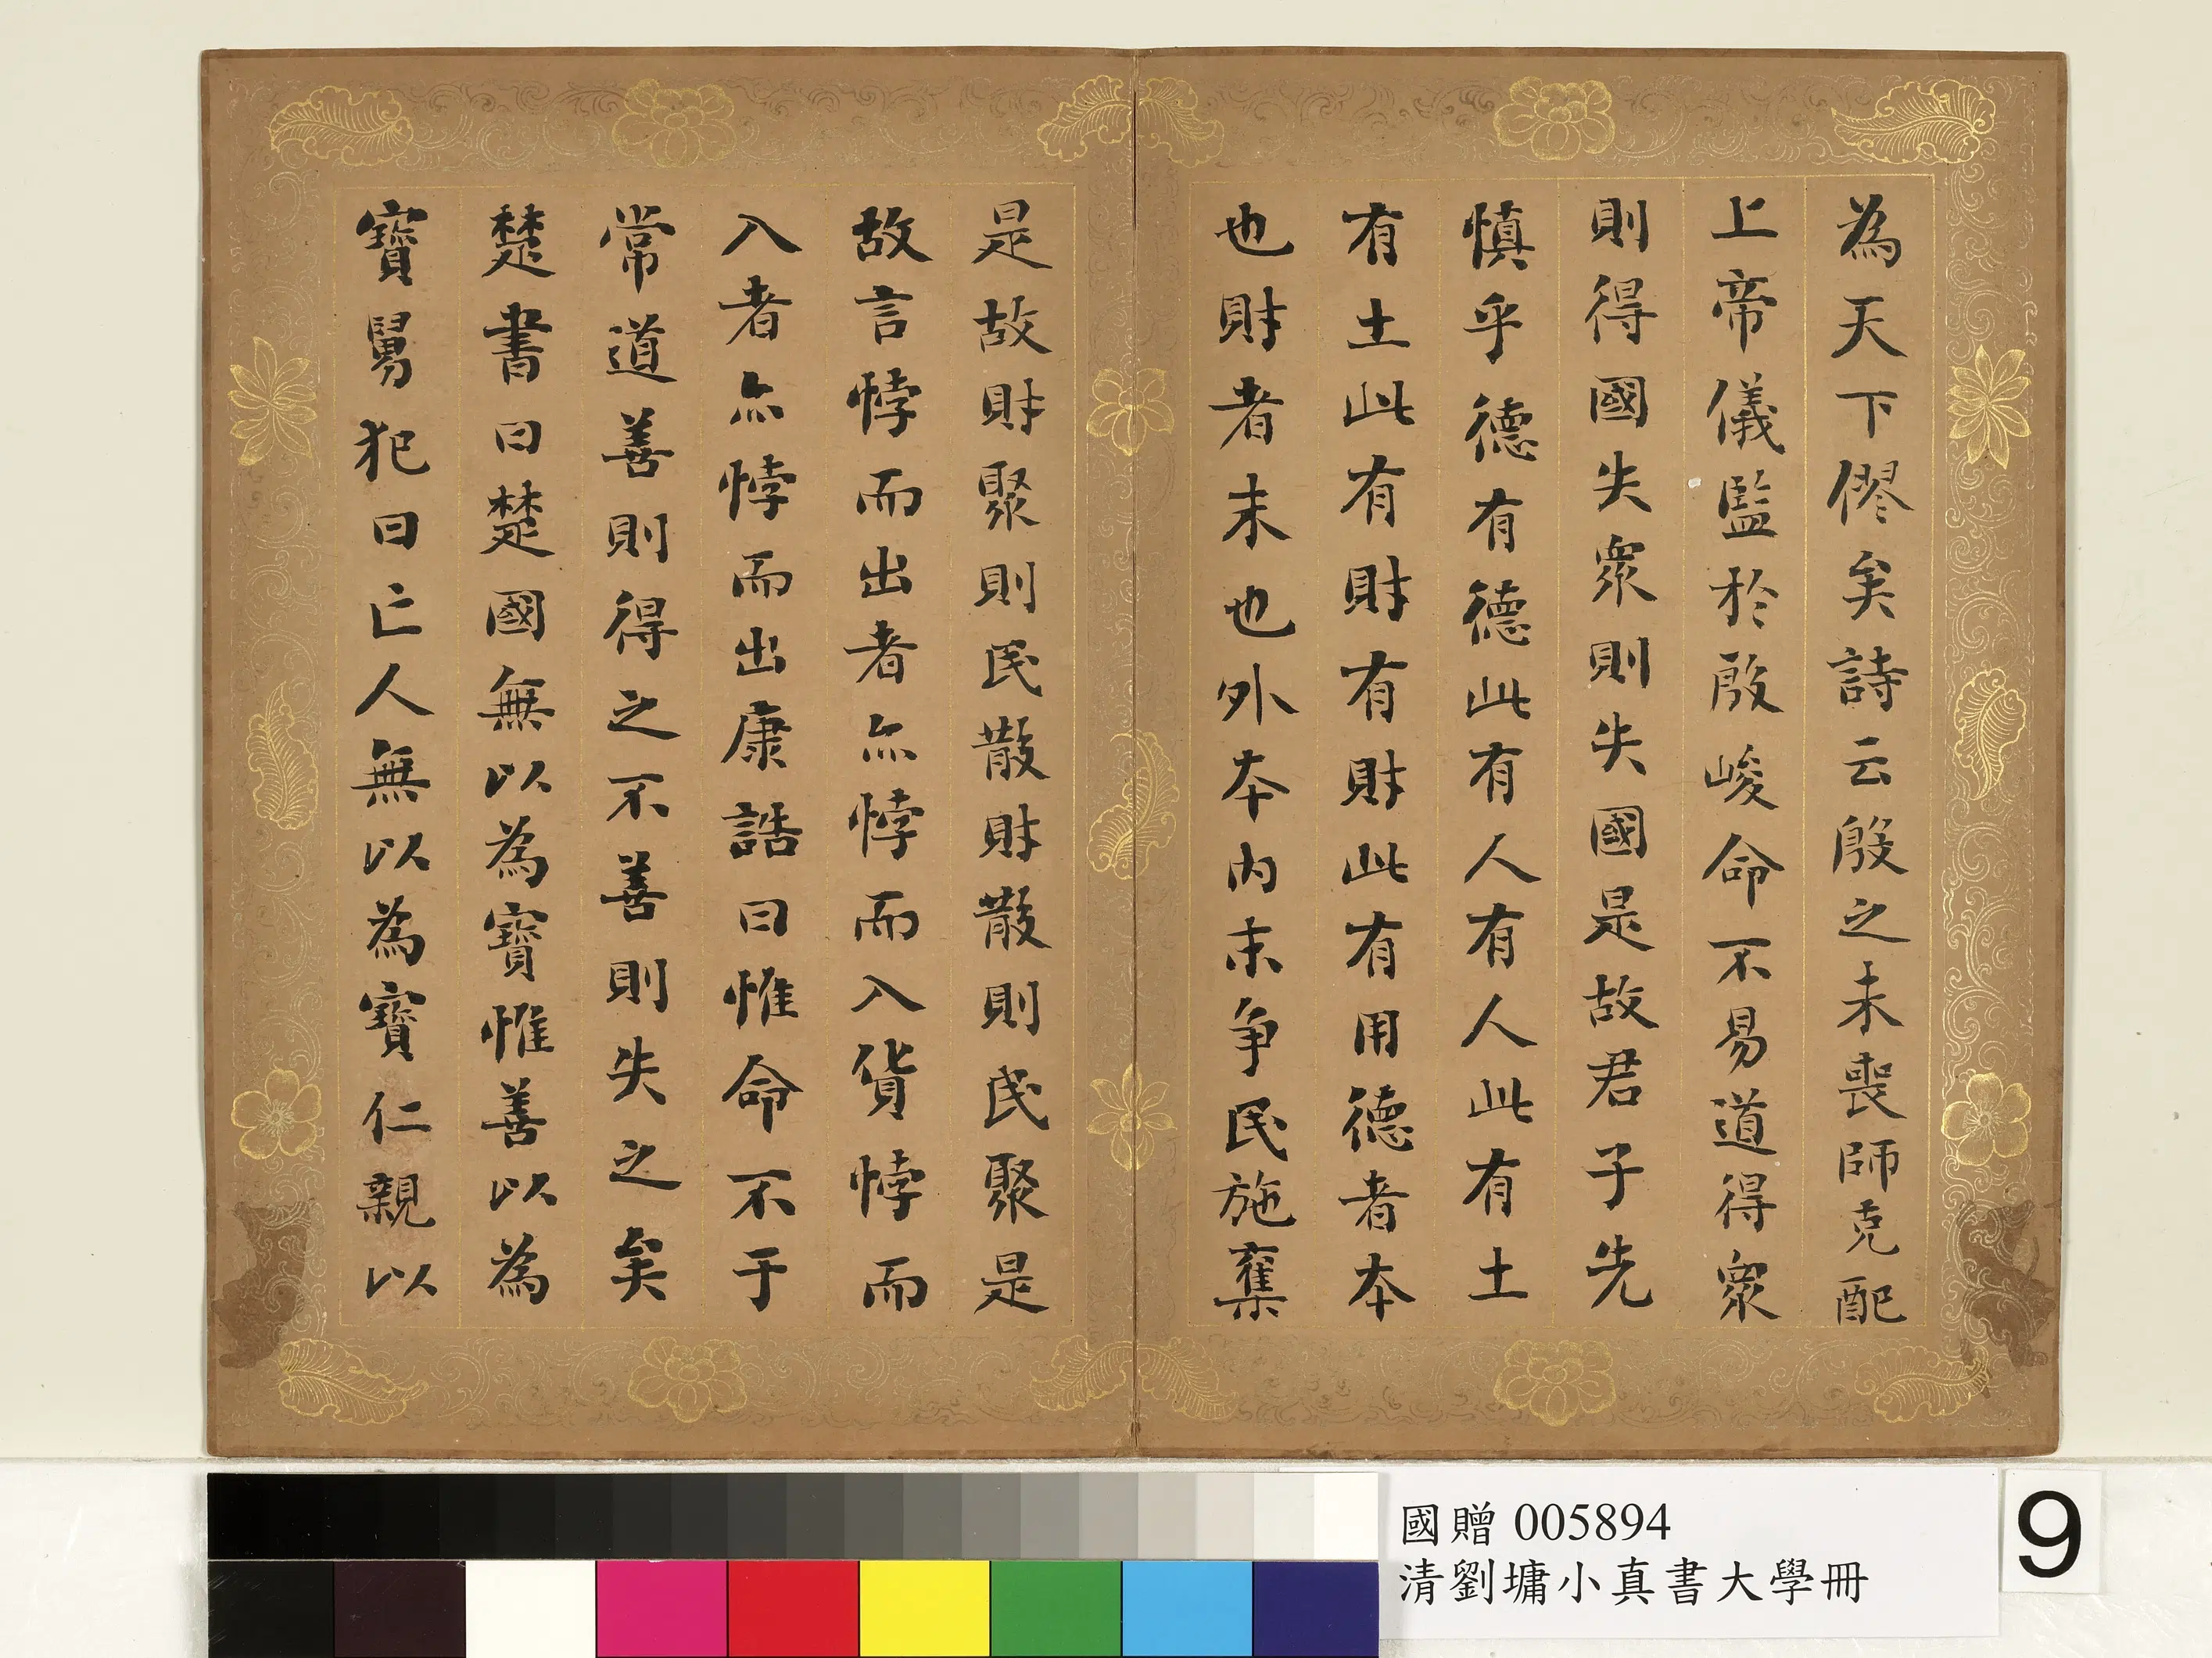 為天下僇矣詩云殷之未喪師克配
上帝儀監於殷峻命不易道得衆
則得國失衆則失國是故君子先
慎乎德有德此有人有人此有土
有土此有財有財此有用德者本
也財者末也外本內末争民施奪
是故財聚則民散財散則民聚是
故言悖而出者亦悖而入貨悖而
入者亦悖而出康誥曰惟命不于
常道善則得之不善則失之矣
楚書曰楚國無以為寶惟善以為
寶舅犯曰亡人無以為寶仁親以
國贈 005894
清劉墉小真書大學冊
9